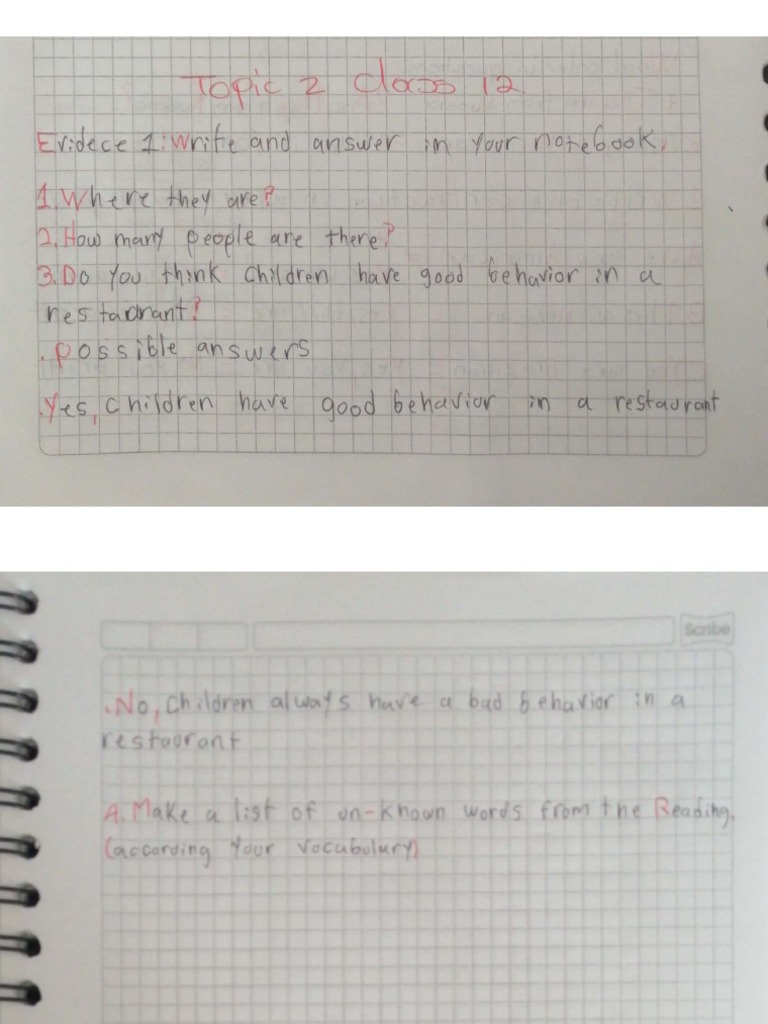 Topic 2 Class 12
Evidece 1: Write and answer in your notebook.
1. Where they are?
2. How many people are there?
3. Do you think children have good behavior in a
restaurant?
. possible answers
. Yes, children have good behavior in a restaurant
Scribe
. No, children always have a bad behavior in a
restaurant
A. Make a list of un-known words from the Reading.
(according your vocabulury)